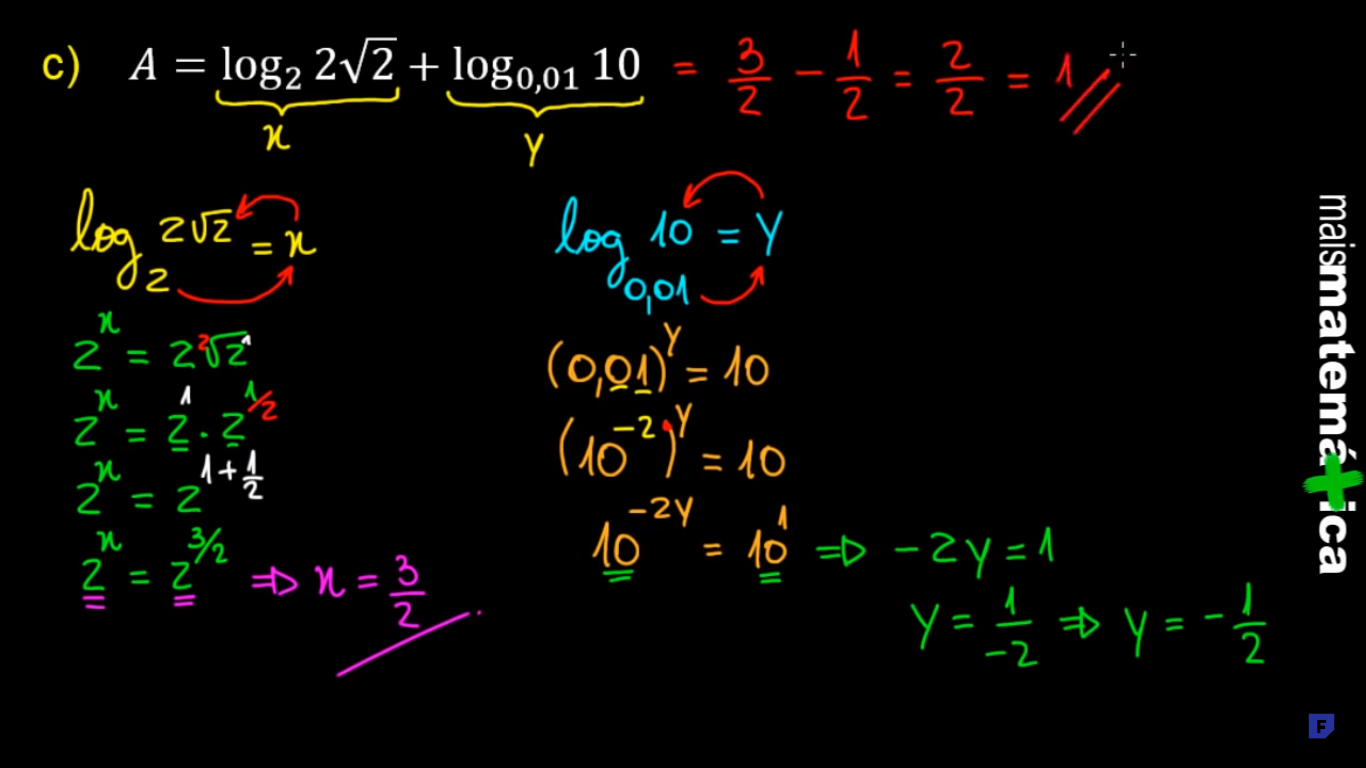 c) A = log₂ 2√2 + log₀,₀₁ 10 = 3/2 − 1/2 = 2/2 = 1
x
y
log₂ 2√2 = x
2ˣ = 2 ²√2¹
2ˣ = 2¹ · 2^(1/2)
2ˣ = 2^(1+1/2)
2ˣ = 2^(3/2) ⇒ x = 3/2
log₀,₀₁ 10 = y
(0,01)^y = 10
(10⁻²)^y = 10
10^(−2y) = 10¹ ⇒ −2y = 1
y = 1/−2 ⇒ y = −1/2
maismatemá+ica
F